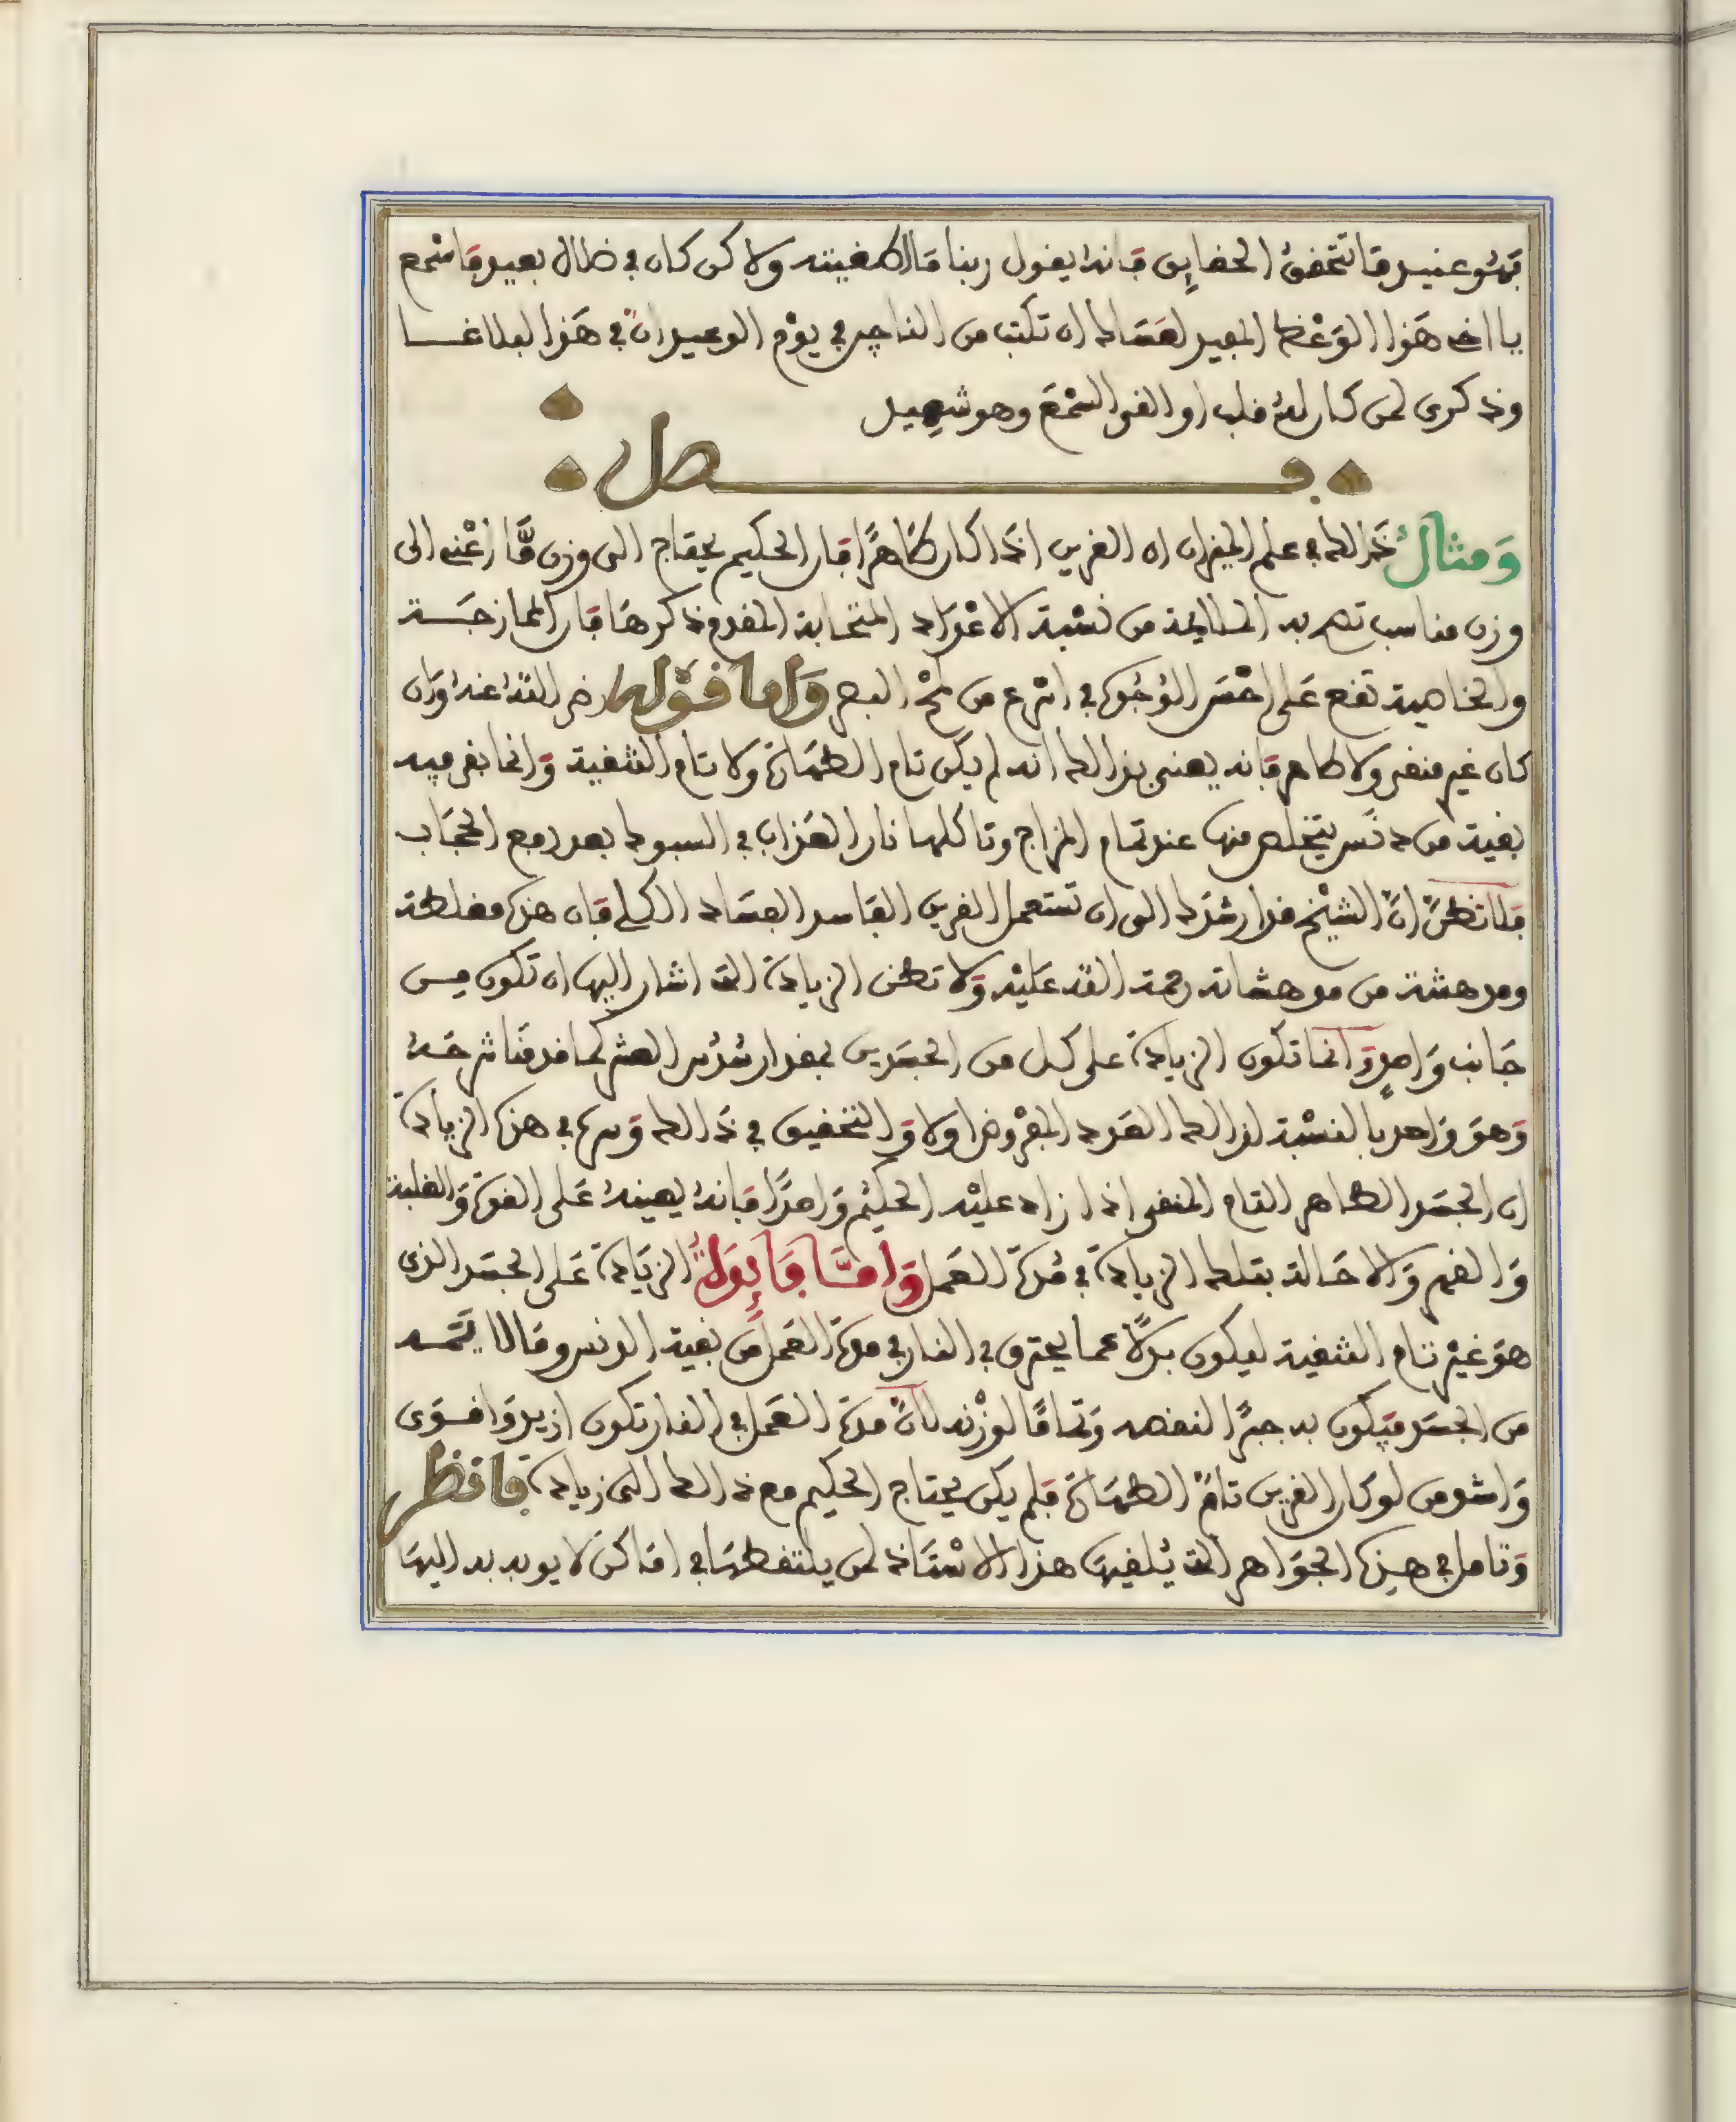 فهو عنيد فاتتحقق الحقايق فانه يقول ربنا ما اطغيته ولاكن كان في ضلال بعيد فاسمع
يا اخي هذا الوعظ المفيد لعساك ان تكتب من الناجين في يوم الوعيد ان في هذا لبلاغا
وذكرى لمن كان له قلب او القى السمع وهو شهيد
فصل
ومثال ذلك في علم الميزان ان القرين اذا كان طاهرا فان الحكيم يحتاج الى وزن ما اعني الى
وزن مناسب تصح به المطالبة من نسبة الاعداد المتحابة المقدم ذكرها فان الممازجة
والخاصية تقع على احسن الوجوه في اسرع من لمح البصر واما قوله رضي الله عنه وان
كان غير منقى ولا طاهر فانه يعني بذلك انه لم يكن تام الطهارة ولا تام التنقية وانما بقي فيه
بقية من دنس يتخلص منها عند تمام المزاج وتاكلها نار العذاب في السبوك بعد رفع الحجاب
فلا تظن ان الشيخ قد ارشدك الى ان تستعمل القرين الفاسد الفساد الكلي فان هذه مغلطة
ومدهشة من مدهشاته رحمة الله عليه ولا تظن الزيادة التي اشار اليها ان تكون من
جانب واحد وانما تكون الزيادة على كل من الجسدين بمقدار سدس العشر كما قدمنا شرحه
وهو واحد بالنسبة لذلك العدد المفروض اولا والتحقيق في ذلك وسره في هذه الزيادة
ان الجسد الطاهر التام المنقى اذا زاد عليه الحكيم واحدا فانه يعينه على القوة والغلبة
والقهر والاحالة بتلك الزيادة في مدة العمل واما فايدة الزيادة على الجسد الذي
هو غير تام التنقية ليكون بدلا عما يحترق في النار في مدة العمل من بقية الدنس وقالا يتمه
من الجسد فيكون به جبرا لنقصه وتماما لوزنه لان مدة العمل في النار تكون ازيد واقوى
واشد من لو كان القرين تام الطهارة فلم يكن يحتاج الحكيم مع ذلك الى زيادة فانظر
وتامل في هذه الجواهر التي يلقيها هذا الاستاذ لمن يلتقطها في اماكن لا يوبه به اليها